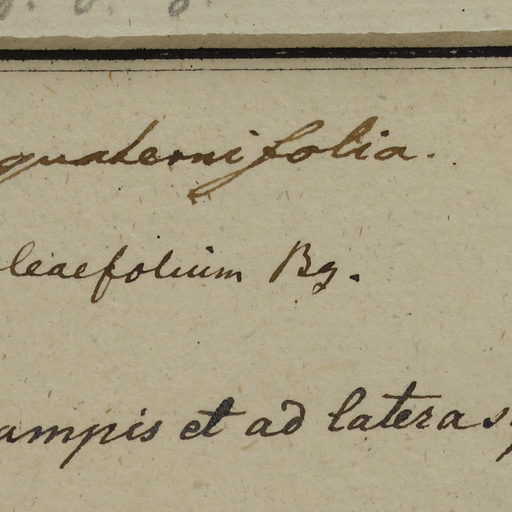 quaternifolia.
leaefolium Bg.
ampis et ad latera s